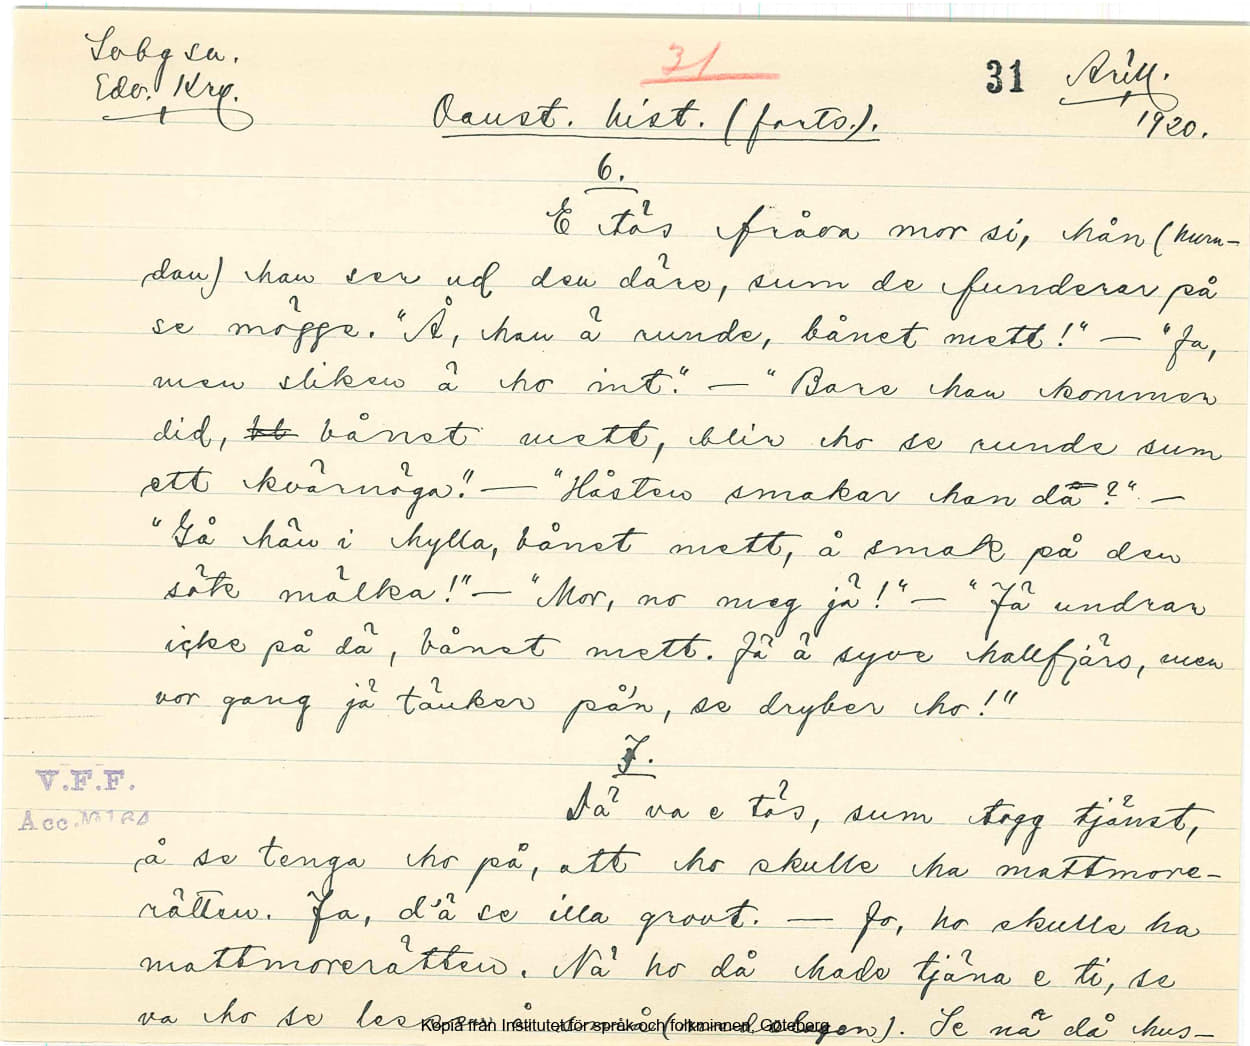 Sobg sn.
Edv. Krq.
31
31
Arill.
1920.
Oanst. hist. (forts.).
6.
E täs fråva mor si, hån (hurn-
dan) han ser ud den däre, sum de funderar på
se mögge. "Å, han ä runde, bånet mett!" — "Ja,
men sliken ä ho int." — "Bare han kommer
did, bånet mett, blir ho se runde sum
ett kvärnöga." — "Håsten smakar han dä?" —
"Gå hän i hylla, bånet mett, å smak på den
söte mälka!" — "Mor, no meg jä!" — "Jä undrar
icke på dä, bånet mett. Jä ä syve hallfjärs, men
vor gang jä tänker på'n, se dryber ho!"
7.
Dä va e täs, sum togg tjänst,
å se tenga ho på, att ho skulle ha mattmore-
rätten. Ja, d'ä se illa grovt. — Jo, ho skulle ha
mattmorerätten. Nä ho då hade tjäna e ti, se
va ho se Se nä då hus-
V.F.F.
Acc. №164
Kopia från Institutet för språk och folkminnen, Göteborg